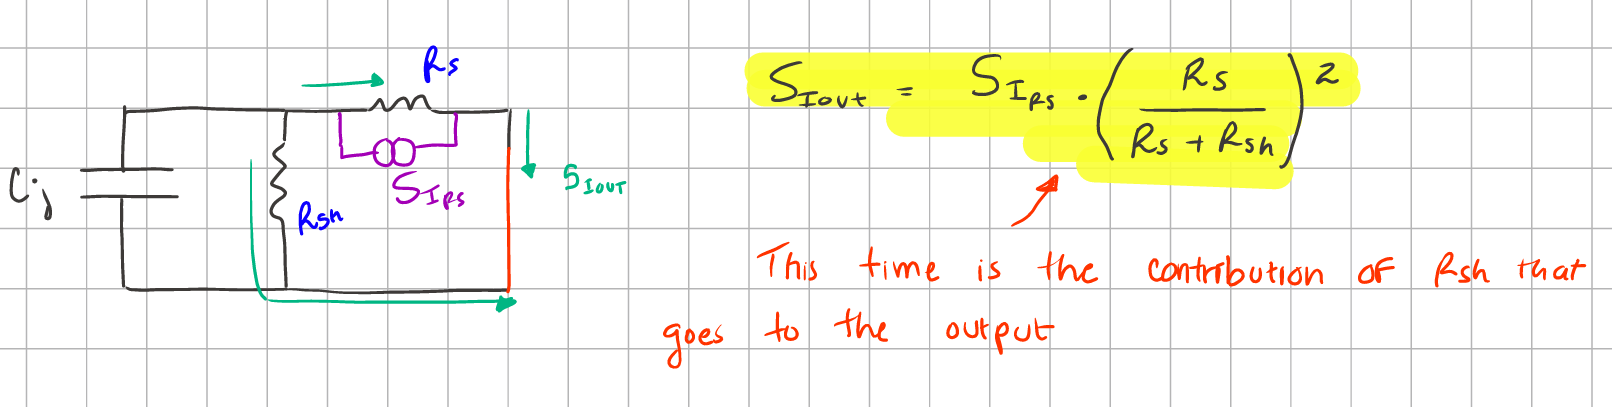 Rs
Cj
Rsh
SIRS
SIOUT
SIout = SIRS · (Rs / (Rs + Rsh))²
This time is the contribution of Rsh that
goes to the output